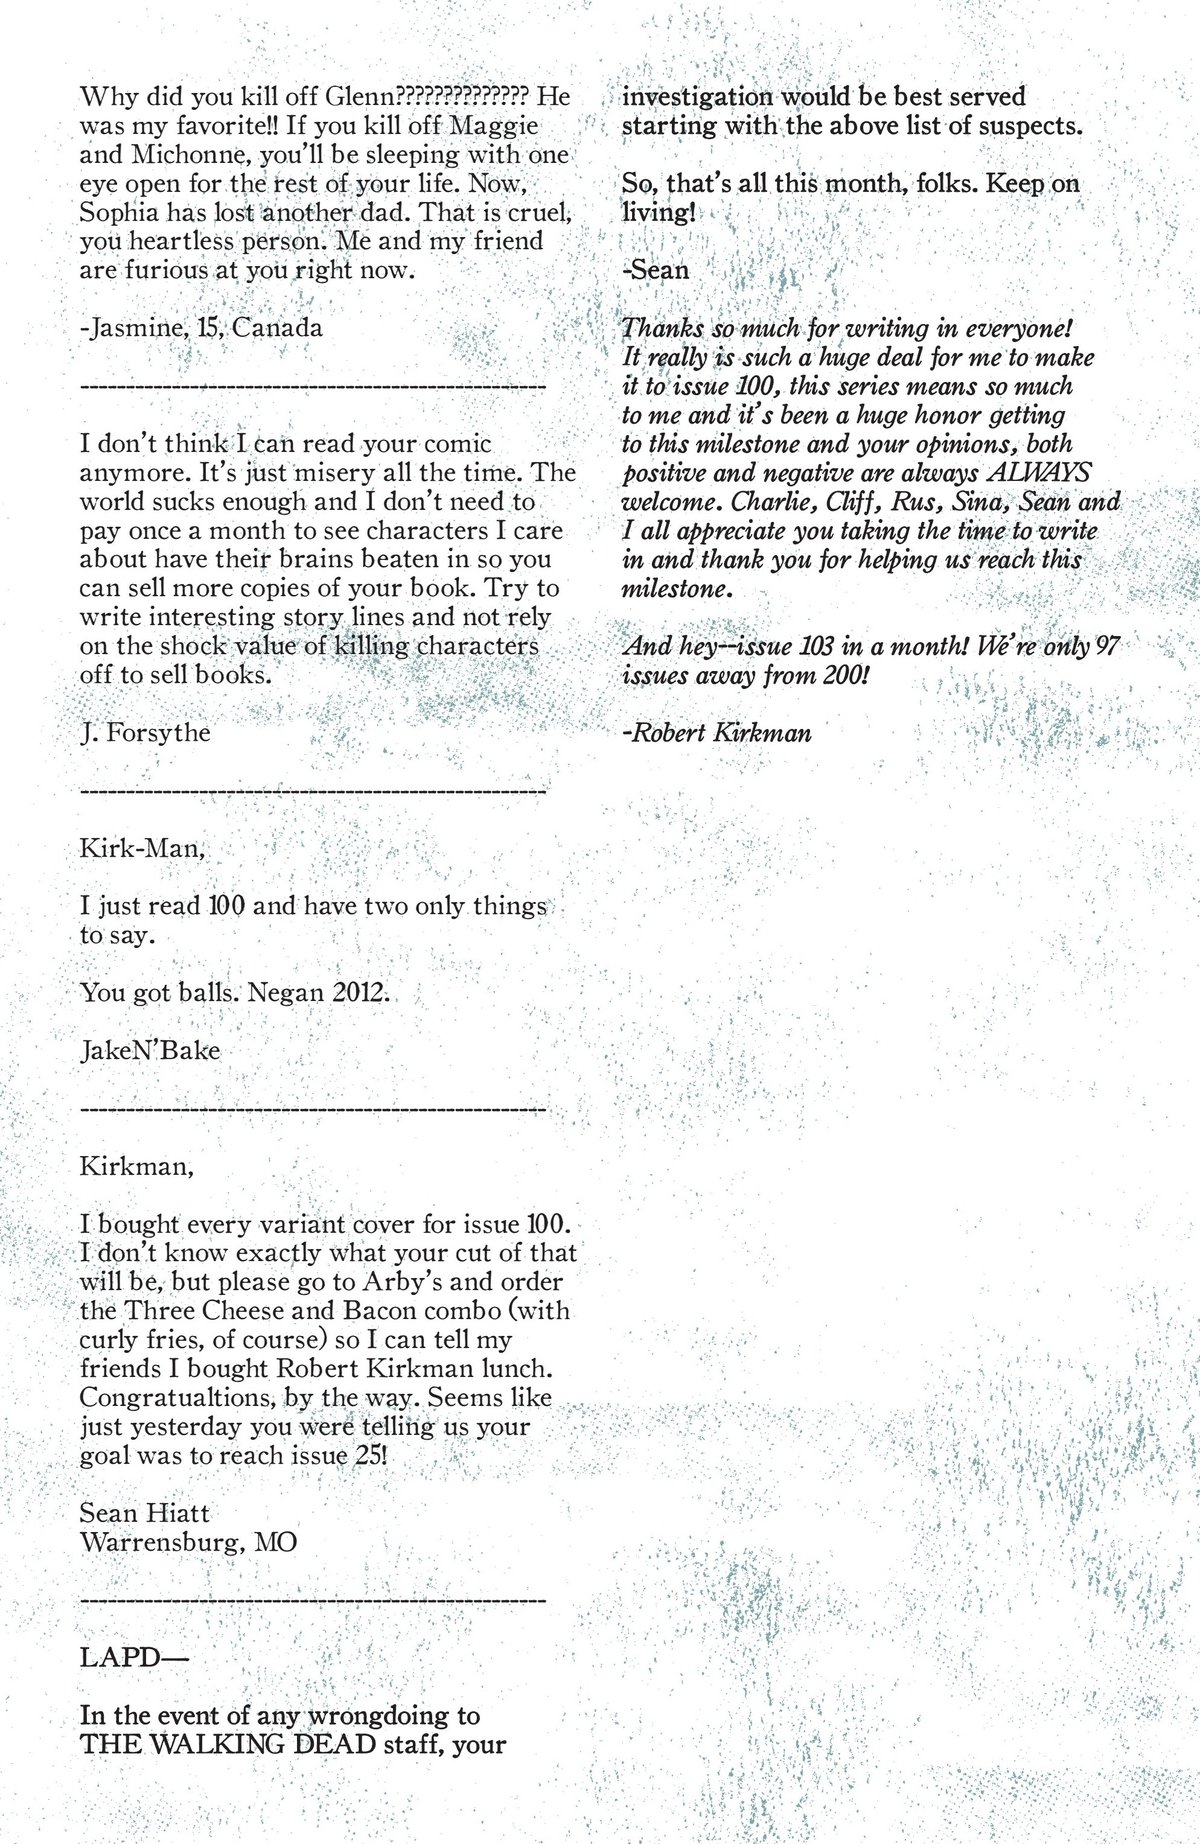 Why did you kill off Glenn?????????????? He
was my favorite!! If you kill off Maggie
and Michonne, you'll be sleeping with one
eye open for the rest of your life. Now,
Sophia has lost another dad. That is cruel,
you heartless person. Me and my friend
are furious at you right now.
-Jasmine, 15, Canada
---------------------------------------------------
I don't think I can read your comic
anymore. It's just misery all the time. The
world sucks enough and I don't need to
pay once a month to see characters I care
about have their brains beaten in so you
can sell more copies of your book. Try to
write interesting story lines and not rely
on the shock value of killing characters
off to sell books.
J. Forsythe
---------------------------------------------------
Kirk-Man,
I just read 100 and have two only things
to say.
You got balls. Negan 2012.
JakeN'Bake
---------------------------------------------------
Kirkman,
I bought every variant cover for issue 100.
I don't know exactly what your cut of that
will be, but please go to Arby's and order
the Three Cheese and Bacon combo (with
curly fries, of course) so I can tell my
friends I bought Robert Kirkman lunch.
Congratualtions, by the way. Seems like
just yesterday you were telling us your
goal was to reach issue 25!
Sean Hiatt
Warrensburg, MO
---------------------------------------------------
LAPD—
In the event of any wrongdoing to
THE WALKING DEAD staff, your
investigation would be best served
starting with the above list of suspects.
So, that's all this month, folks. Keep on
living!
-Sean
Thanks so much for writing in everyone!
It really is such a huge deal for me to make
it to issue 100, this series means so much
to me and it's been a huge honor getting
to this milestone and your opinions, both
positive and negative are always ALWAYS
welcome. Charlie, Cliff, Rus, Sina, Sean and
I all appreciate you taking the time to write
in and thank you for helping us reach this
milestone.
And hey--issue 103 in a month! We're only 97
issues away from 200!
-Robert Kirkman